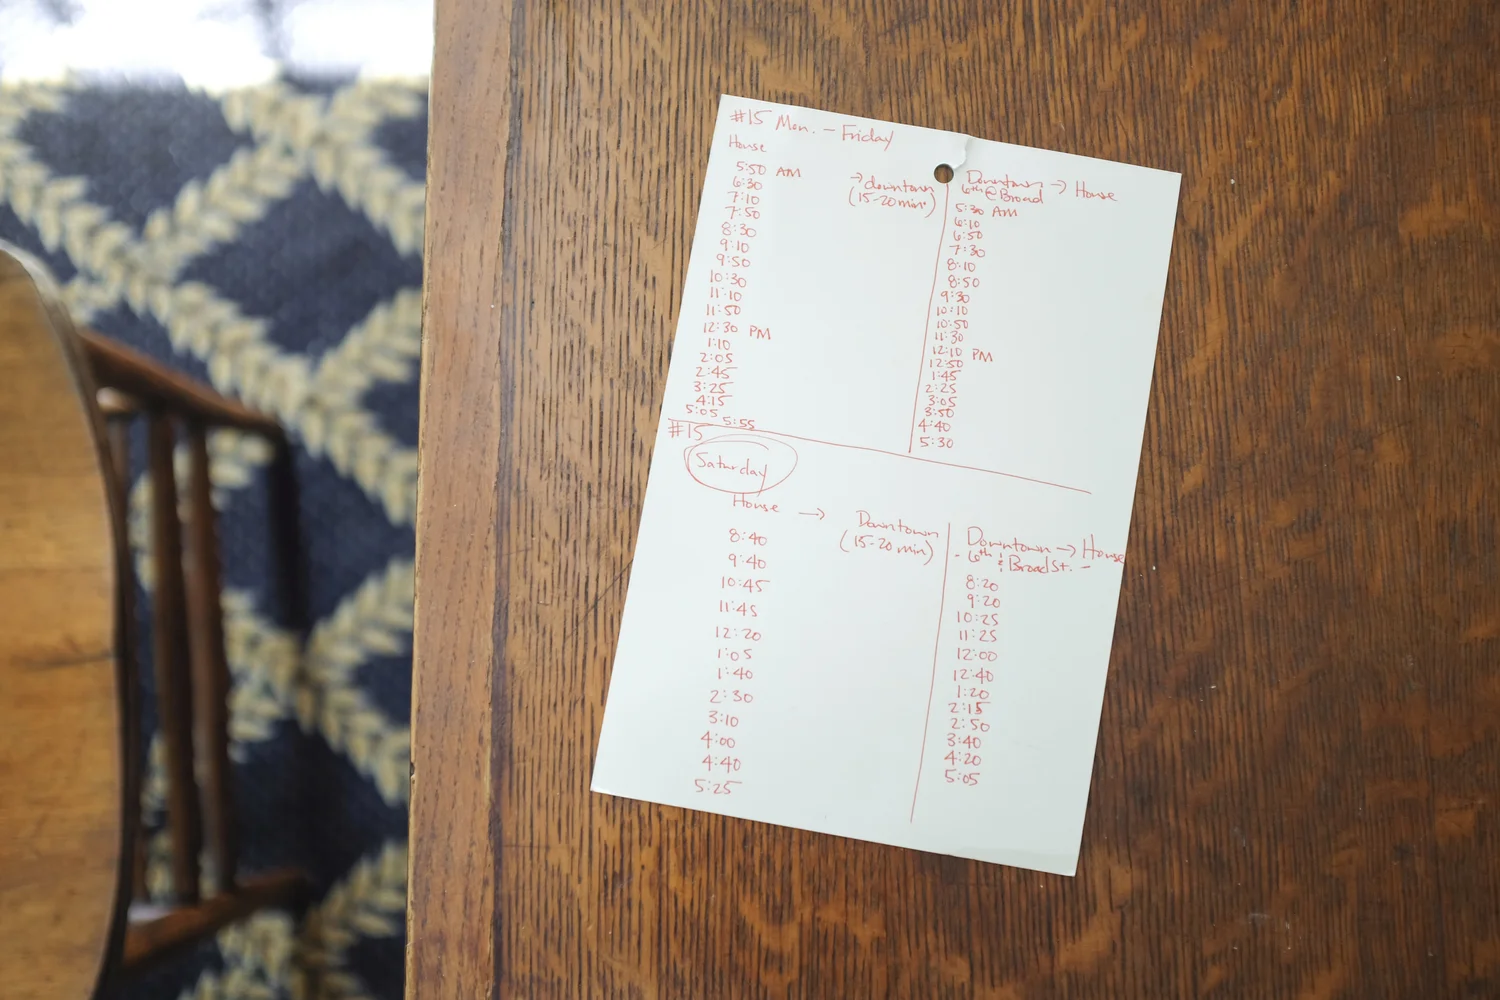 #15 Mon. - Friday
House
→ downtown
(15-20 min.)
5:50 AM
6:30
7:10
7:50
8:30
9:10
9:50
10:30
11:10
11:50
12:30 PM
1:10
2:05
2:45
3:25
4:15
5:05 5:55
Downtown → House
6th @ Broad
5:30 AM
6:10
6:50
7:30
8:10
8:50
9:30
10:10
10:50
11:30
12:10 PM
12:50
1:45
2:25
3:05
3:50
4:40
5:30
#15
Saturday
House → Downtown
(15-20 min)
8:40
9:40
10:45
11:45
12:20
1:05
1:40
2:30
3:10
4:00
4:40
5:25
Downtown → House
- 6th & Broad St. -
8:20
9:20
10:25
11:25
12:00
12:40
1:20
2:15
2:50
3:40
4:20
5:05